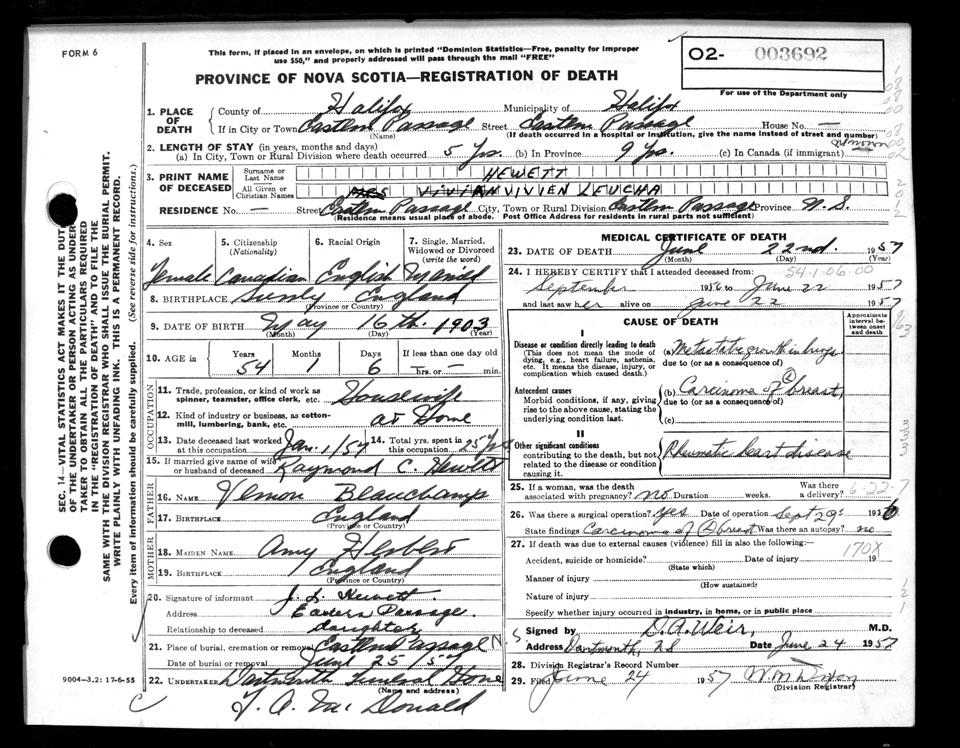 FORM 6
This form, if placed in an envelope, on which is printed "Dominion Statistics—Free, penalty for improper
use $50," and properly addressed will pass through the mail "FREE"
O2- 003692
For use of the Department only
PROVINCE OF NOVA SCOTIA—REGISTRATION OF DEATH
1. PLACE OF DEATH County of Halifax Municipality of Halifax
If in City or Town Eastern Passage Street Eastern Passage House No. —
(Name) (If death occurred in a hospital or institution, give the name instead of street and number)
2. LENGTH OF STAY (in years, months and days)
(a) In City, Town or Rural Division where death occurred 5 Yrs. (b) In Province 9 Yrs. (c) In Canada (if immigrant) unknown
3. PRINT NAME OF DECEASED Surname or Last Name HEWETT
All Given or Christian Names MRS VIVIAN VIVIEN LEUCHA
RESIDENCE No. — Street Eastern Passage City, Town or Rural Division Eastern Passage Province N.S.
(Residence means usual place of abode. Post Office Address for residents in rural parts not sufficient)
4. Sex 5. Citizenship (Nationality) 6. Racial Origin 7. Single, Married, Widowed or Divorced (write the word)
Female Canadian English Married
8. BIRTHPLACE Surrey England
(Province or Country)
9. DATE OF BIRTH May 16th. 1903
(Month) (Day) (Year)
10. AGE in Years Months Days If less than one day old
54 1 6 hrs. or — min.
OCCUPATION
11. Trade, profession, or kind of work as spinner, teamster, office clerk, etc. Housewife
12. Kind of industry or business, as cotton-mill, lumbering, bank, etc. at Home
13. Date deceased last worked at this occupation Jan. 1/57 14. Total yrs. spent in this occupation 25 yrs
15. If married give name of wife or husband of deceased Raymond C. Hewett
FATHER
16. NAME Vernon Beauchamp
17. BIRTHPLACE England
(Province or Country)
MOTHER
18. MAIDEN NAME Amy Herbert
19. BIRTHPLACE England
(Province or Country)
20. Signature of informant J. L. Hewett
Address Eastern Passage.
Relationship to deceased daughter
21. Place of burial, cremation or removal Eastern Passage N
Date of burial or removal June 25/57
22. UNDERTAKER Dartmouth Funeral Home
(Name and address)
J. A. MacDonald
9004—3.2: 17-6-55
MEDICAL CERTIFICATE OF DEATH
23. DATE OF DEATH June 22nd. 1957
(Month) (Day) (Year)
54.1.06.00
24. I HEREBY CERTIFY that I attended deceased from:
September 1956 to June 22 1957
and last saw her alive on June 22 1957
CAUSE OF DEATH
Approximate interval between onset and death
I
Disease or condition directly leading to death
(This does not mean the mode of dying, e.g., heart failure, asthenia, etc. It means the disease, injury, or complication which caused death.)
(a) Metastatic growth in lungs
due to (or as a consequence of)
Antecedent causes
Morbid conditions, if any, giving rise to the above cause, stating the underlying condition last.
(b) Carcinoma of breast
due to (or as a consequence of)
(c)
II
Other significant conditions
contributing to the death, but not related to the disease or condition causing it.
Rheumatic heart disease
25. If a woman, was the death associated with pregnancy? no Duration weeks. Was there a delivery?
6-22-7
26. Was there surgical operation? Yes Date of operation Sept 29 1956
State findings Carcinoma of breast Was there an autopsy? no
27. If death was due to external causes (violence) fill in also the following:—
170X
Accident, suicide or homicide? Date of injury 19
(State which)
Manner of injury
(How sustained)
Nature of injury
Specify whether injury occurred in industry, in home, or in public place
Signed by D. A. Weir, M.D.
Address Dartmouth, N S Date June 24 1957
28. Division Registrar's Record Number
29. Filed June 24 1957
(Division Registrar)
SEC. 14—VITAL STATISTICS ACT MAKES IT THE DUTY
OF THE UNDERTAKER OR PERSON ACTING AS UNDERTAKER TO OBTAIN ALL THE PARTICULARS REQUIRED
IN THE "REGISTRATION OF DEATH" AND TO FILE THE
SAME WITH THE DIVISION REGISTRAR WHO SHALL ISSUE THE BURIAL PERMIT.
WRITE PLAINLY WITH UNFADING INK. THIS IS A PERMANENT RECORD.
Every item of information should be carefully supplied. (See reverse side for instructions.)